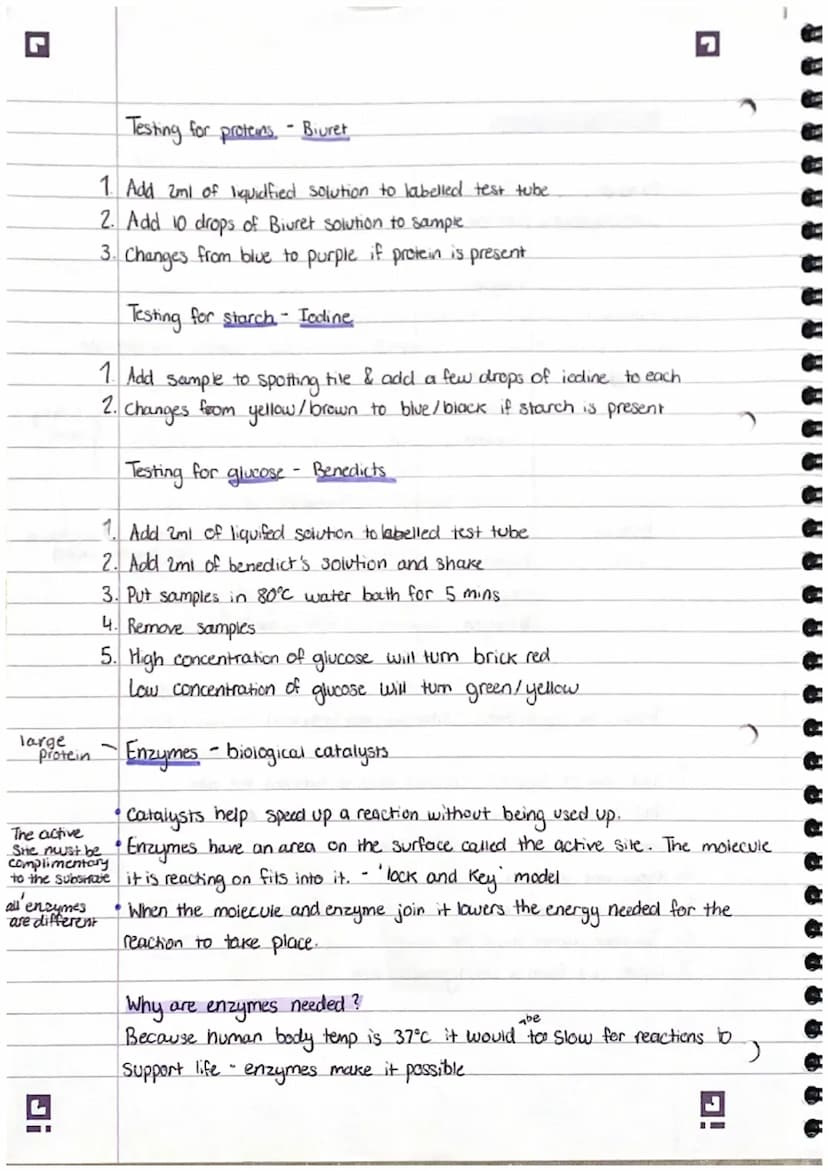 Testing for proteins - Biuret
1. Add 2ml of liquidfied solution to labelled test tube
2. Add 10 drops of Biuret solution to sample
3. Changes from blue to purple if protein is present
Testing for starch - Iodine
1. Add sample to spotting tile & add a few drops of iodine to each
2. Changes from yellow/brown to blue/black if starch is present
Testing for glucose - Benedicts
1. Add 2ml of liquifed solution to labelled test tube
2. Add 2ml of benedict's solution and shake
3. Put samples in 80°C water bath for 5 mins
4. Remove samples
5. High concentration of glucose will turn brick red
Low concentration of glucose will turn green/yellow
large
protein
Enzymes - biological catalysts
• Catalysts help speed up a reaction without being used up.
The active
site must be
complimentary
to the substrate
• Enzymes have an area on the surface called the active site. The molecule
it is reacting on fits into it. - 'lock and key' model
all enzymes
are different
• When the molecule and enzyme join it lowers the energy needed for the
reaction to take place.
Why are enzymes needed?
Because human body temp is 37°C it would be too slow for reactions to
support life - enzymes make it possible